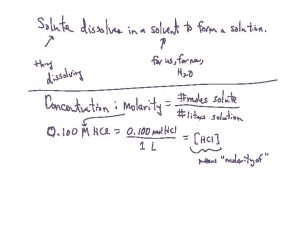 Solute dissolves in a solvent to form a solution.
thing dissolving
for us, for now, H2O
Concentration: molarity = #moles solute / #liters solution
0.100 M HCl = 0.100 mol HCl / 1 L = [HCl]
means "molarity of"